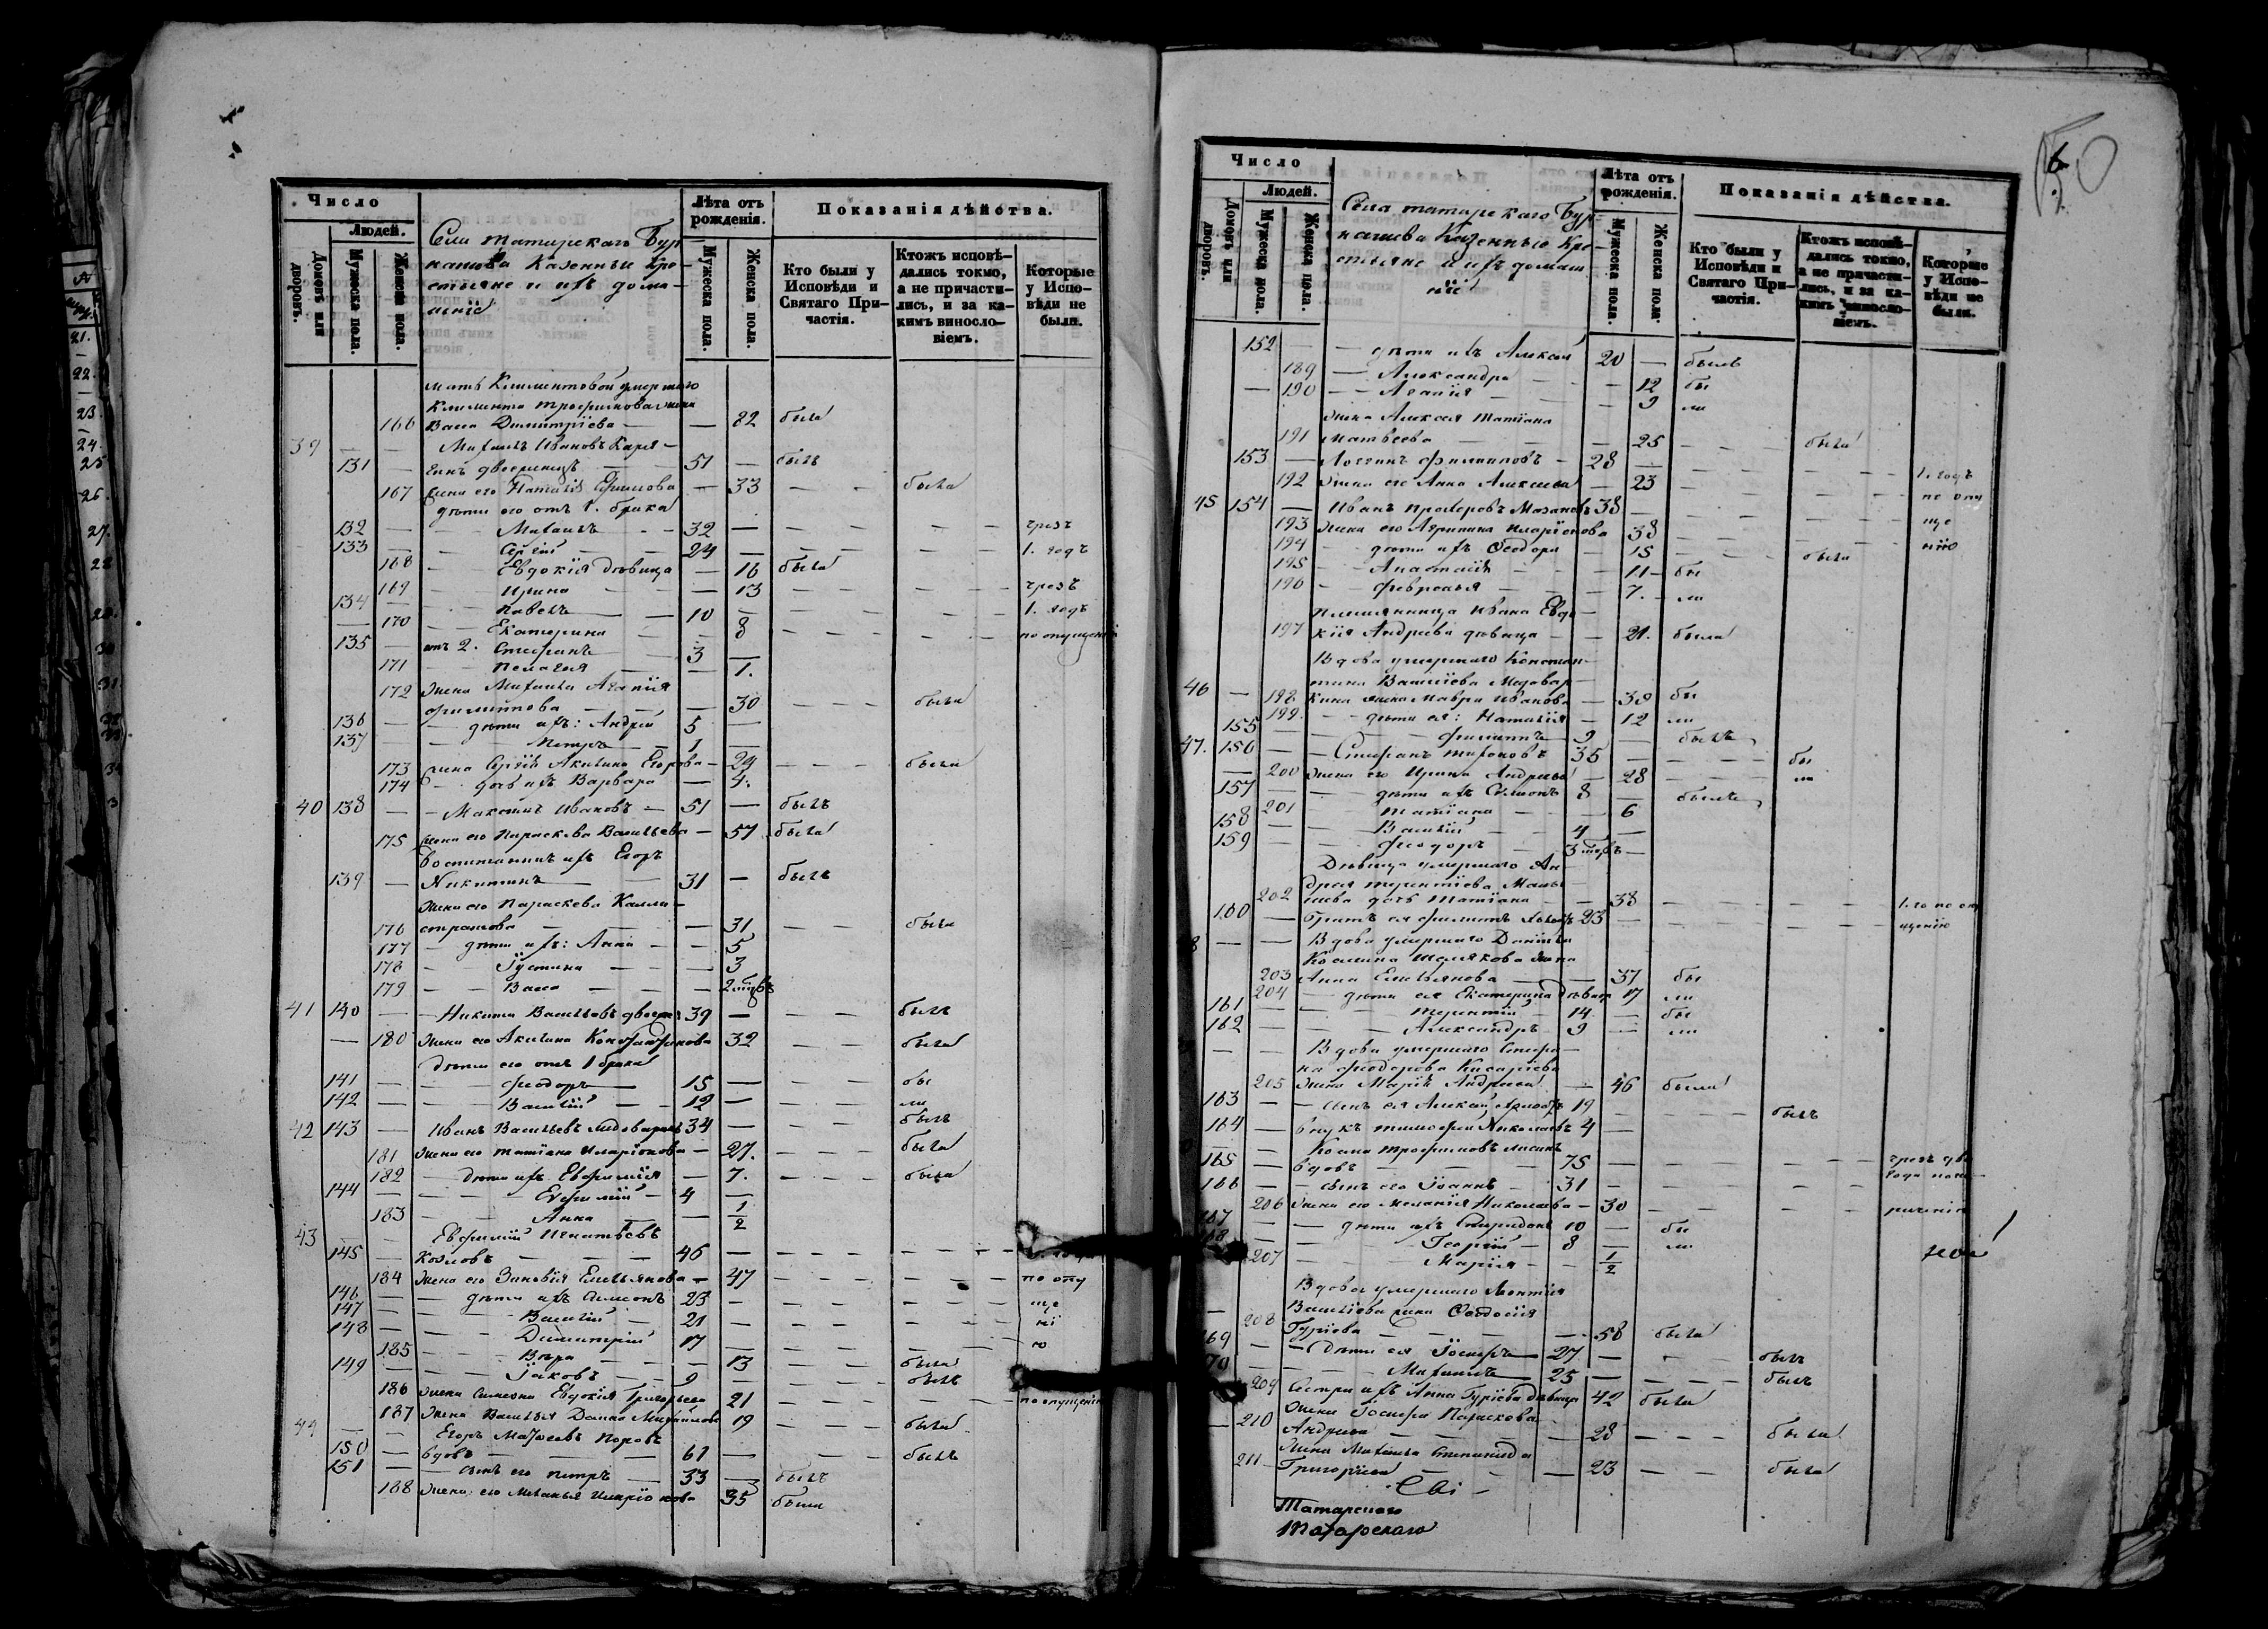 Число
Людей.
Домовъ или дворовъ.
Мужеска пола.
Женска пола.
Села татарскаго Бур-
нашева Казенные кре-
стьяне и ихъ дома-
шніе
Лѣта отъ рожденія.
Мужеска пола.
Женска пола.
Показанія дѣйства.
Кто были у Исповѣди и Святаго При-частія.
Ктожъ исповѣ-дались токмо, а не причасти-лись, и за ка-кимъ винсло-віемъ.
Которые у Испо-вѣди не были.
мать Климентовой умершаго
Климента Трофимова жена
166 Васса Димитріева — 82 была
39 Михаилъ Ивановъ
131 51 — былъ
167 жена его Наталія Ефимова — 33 была
дѣти его отъ 1. брака
132 Михаилъ 32 — чрезъ
133 Сергій 24 — 1. годъ
168 Евдокія дѣвица — 16 была
169 Ирина — 13 чрезъ
134 Павелъ 10 — 1. годъ
170 Екатерина — 8 по опущенію
135 отъ 2. Стефанъ 3 —
171 Пелагія — 1.
172 жена Михаила Агапія
Филиппова — 30 была
136 дѣти ихъ: Андрей 5 —
137 Петръ 1 —
173 жена Сергія Акилина Егорова — 29 была
174 дочь ихъ Варвара — 4.
40 138 Максимъ Ивановъ 51 — былъ
175 жена его Параскева Васильева — 57 была
воспитанникъ ихъ Егоръ
139 Никитинъ 31 — былъ
жена его Параскева Калли-
176 стратова — 31 была
177 дѣти ихъ: Анна — 5
178 Іустина — 3
179 Васса
41 140 Никита Васильевъ 39 — былъ
180 жена его Акилина 32 была
дѣти его отъ 1 брака
141 Феодоръ 15 — бы
142 Василій 12 — ли
42 143 Иванъ Васильевъ 34 — былъ
181 жена его Татіана Иларіонова — 27. была
182 дѣти ихъ Евфимія — 7. была
144 Евфимій 4 —
183 Анна — 1/2
43 Евфимій Игнатьевъ
145 Козловъ 46 —
184 жена его Зиновія Емельянова — 47 по опу
146 дѣти ихъ Симеонъ 23 — ще
147 Василій 21 — ні
148 Димитрій 17 — ю
185 Вѣра — 13 была
149 Іаковъ 9 — былъ
186 жена Симеона Евдокія Григорьева 21 по опущенію
187 жена Василья Домна Михайлова 19 была
44 Егоръ Матѳеевъ
150 вдовъ 61 былъ
151 сынъ его Петръ 33 — былъ
188 жена его Меланья Иларіонова 35 была
Число
Людей.
Домовъ или дворовъ.
Мужеска пола.
Женска пола.
Села татарскаго Бур-
нашева Казенные кре-
стьяне и ихъ домаш
ніе
Лѣта отъ рожденія.
Мужеска пола.
Женска пола.
Показанія дѣйства.
Кто были у Исповѣди и Святаго При-частія.
Ктожъ исповѣ-дались токмо, а не причасти-лись, и за ка-кимъ винсло-віемъ.
Которые у Испо-вѣди не были.
152 дѣти ихъ Алексѣй 20 — былъ
189 Александра — 12 бы
190 Агапія — 9 ли
жена Алексѣя Татіана
191 Матвѣева — 25 была
153 Логгинъ Филипповъ 28 — 1. годъ
192 жена его Анна Алексѣева — 23 по опу
45 154 Иванъ Прохоровъ Мазановъ 38 — ще
193 жена его Агрипина Иларіонова 38 нію
194 дѣти ихъ Феодора — 15 была
195 Анастасія — 11 бы
196 Февронья — 7. ли
племянница Ивана Евдо-
197 кія Андреева дѣвица — 21. была
Вдова умершаго Констан-
тина Васильева Медовар-
46 198 кина жена Мавра Иванова — 39 бы
199 дѣти ея: Наталія — 12 ли
155 Филиппъ 9 — былъ
47. 156 Стефанъ Тихоновъ 35 бы
200 жена его Ирина Андреева — 28 ли
157 дѣти ихъ Симеонъ 8 — былъ
201 Татіана — 6
158 Василій 4 —
159 Феодоръ
Дѣвица умершаго Ан-
дрея Терентіева
202 дочь Татіана — 38
160 братъ ея Филиппъ 23 —
8 Вдова умершаго Даніила
жена
203 Анна Емельянова — 37 бы
204 дѣти ея Екатерина дѣвица 17 ли
161 Терентій 14 — бы
162 Александръ 9 — ли
Вдова умершаго Стефа-
на Феодорова
205 жена Марія Андреева — 46 была
163 сынъ ея Алексѣй 19 былъ
164 внукъ Тимофей Николаевъ 4 —
Козма Трофимовъ
165 вдовъ 75 — чрезъ два
166 сынъ его Іоаннъ 31 —
206 жена его Меланія Николаева — 30
167 дѣти ихъ Спиридонъ 10 — бы
168 Георгій 8 — ли
207 Марія — 1/2
Вдова умершаго Леонтія
Васильева жена Феодосія
208 Гуріева — 58 была
169 дѣти ея Іосифъ 27 — былъ
170 Михаилъ 25 — былъ
209 сестра ихъ Анна Гуріева дѣвица 42 была
жена Іосифа Параскева
210 Андреева — 28 была
жена Михаила Степанида
211 Григорьева — 23 была
Татарскаго
Татарскаго